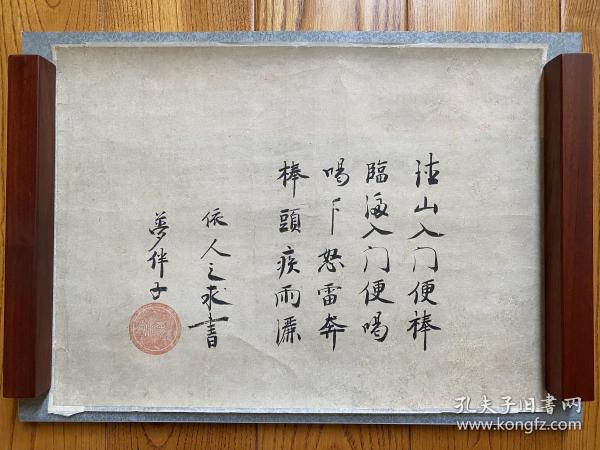 徳山入门便棒
臨濟入门便喝
喝下怒雷奔
棒頭疾雨灑
依人之求書
夢伴子
孔夫子旧书网
www.kongfz.com